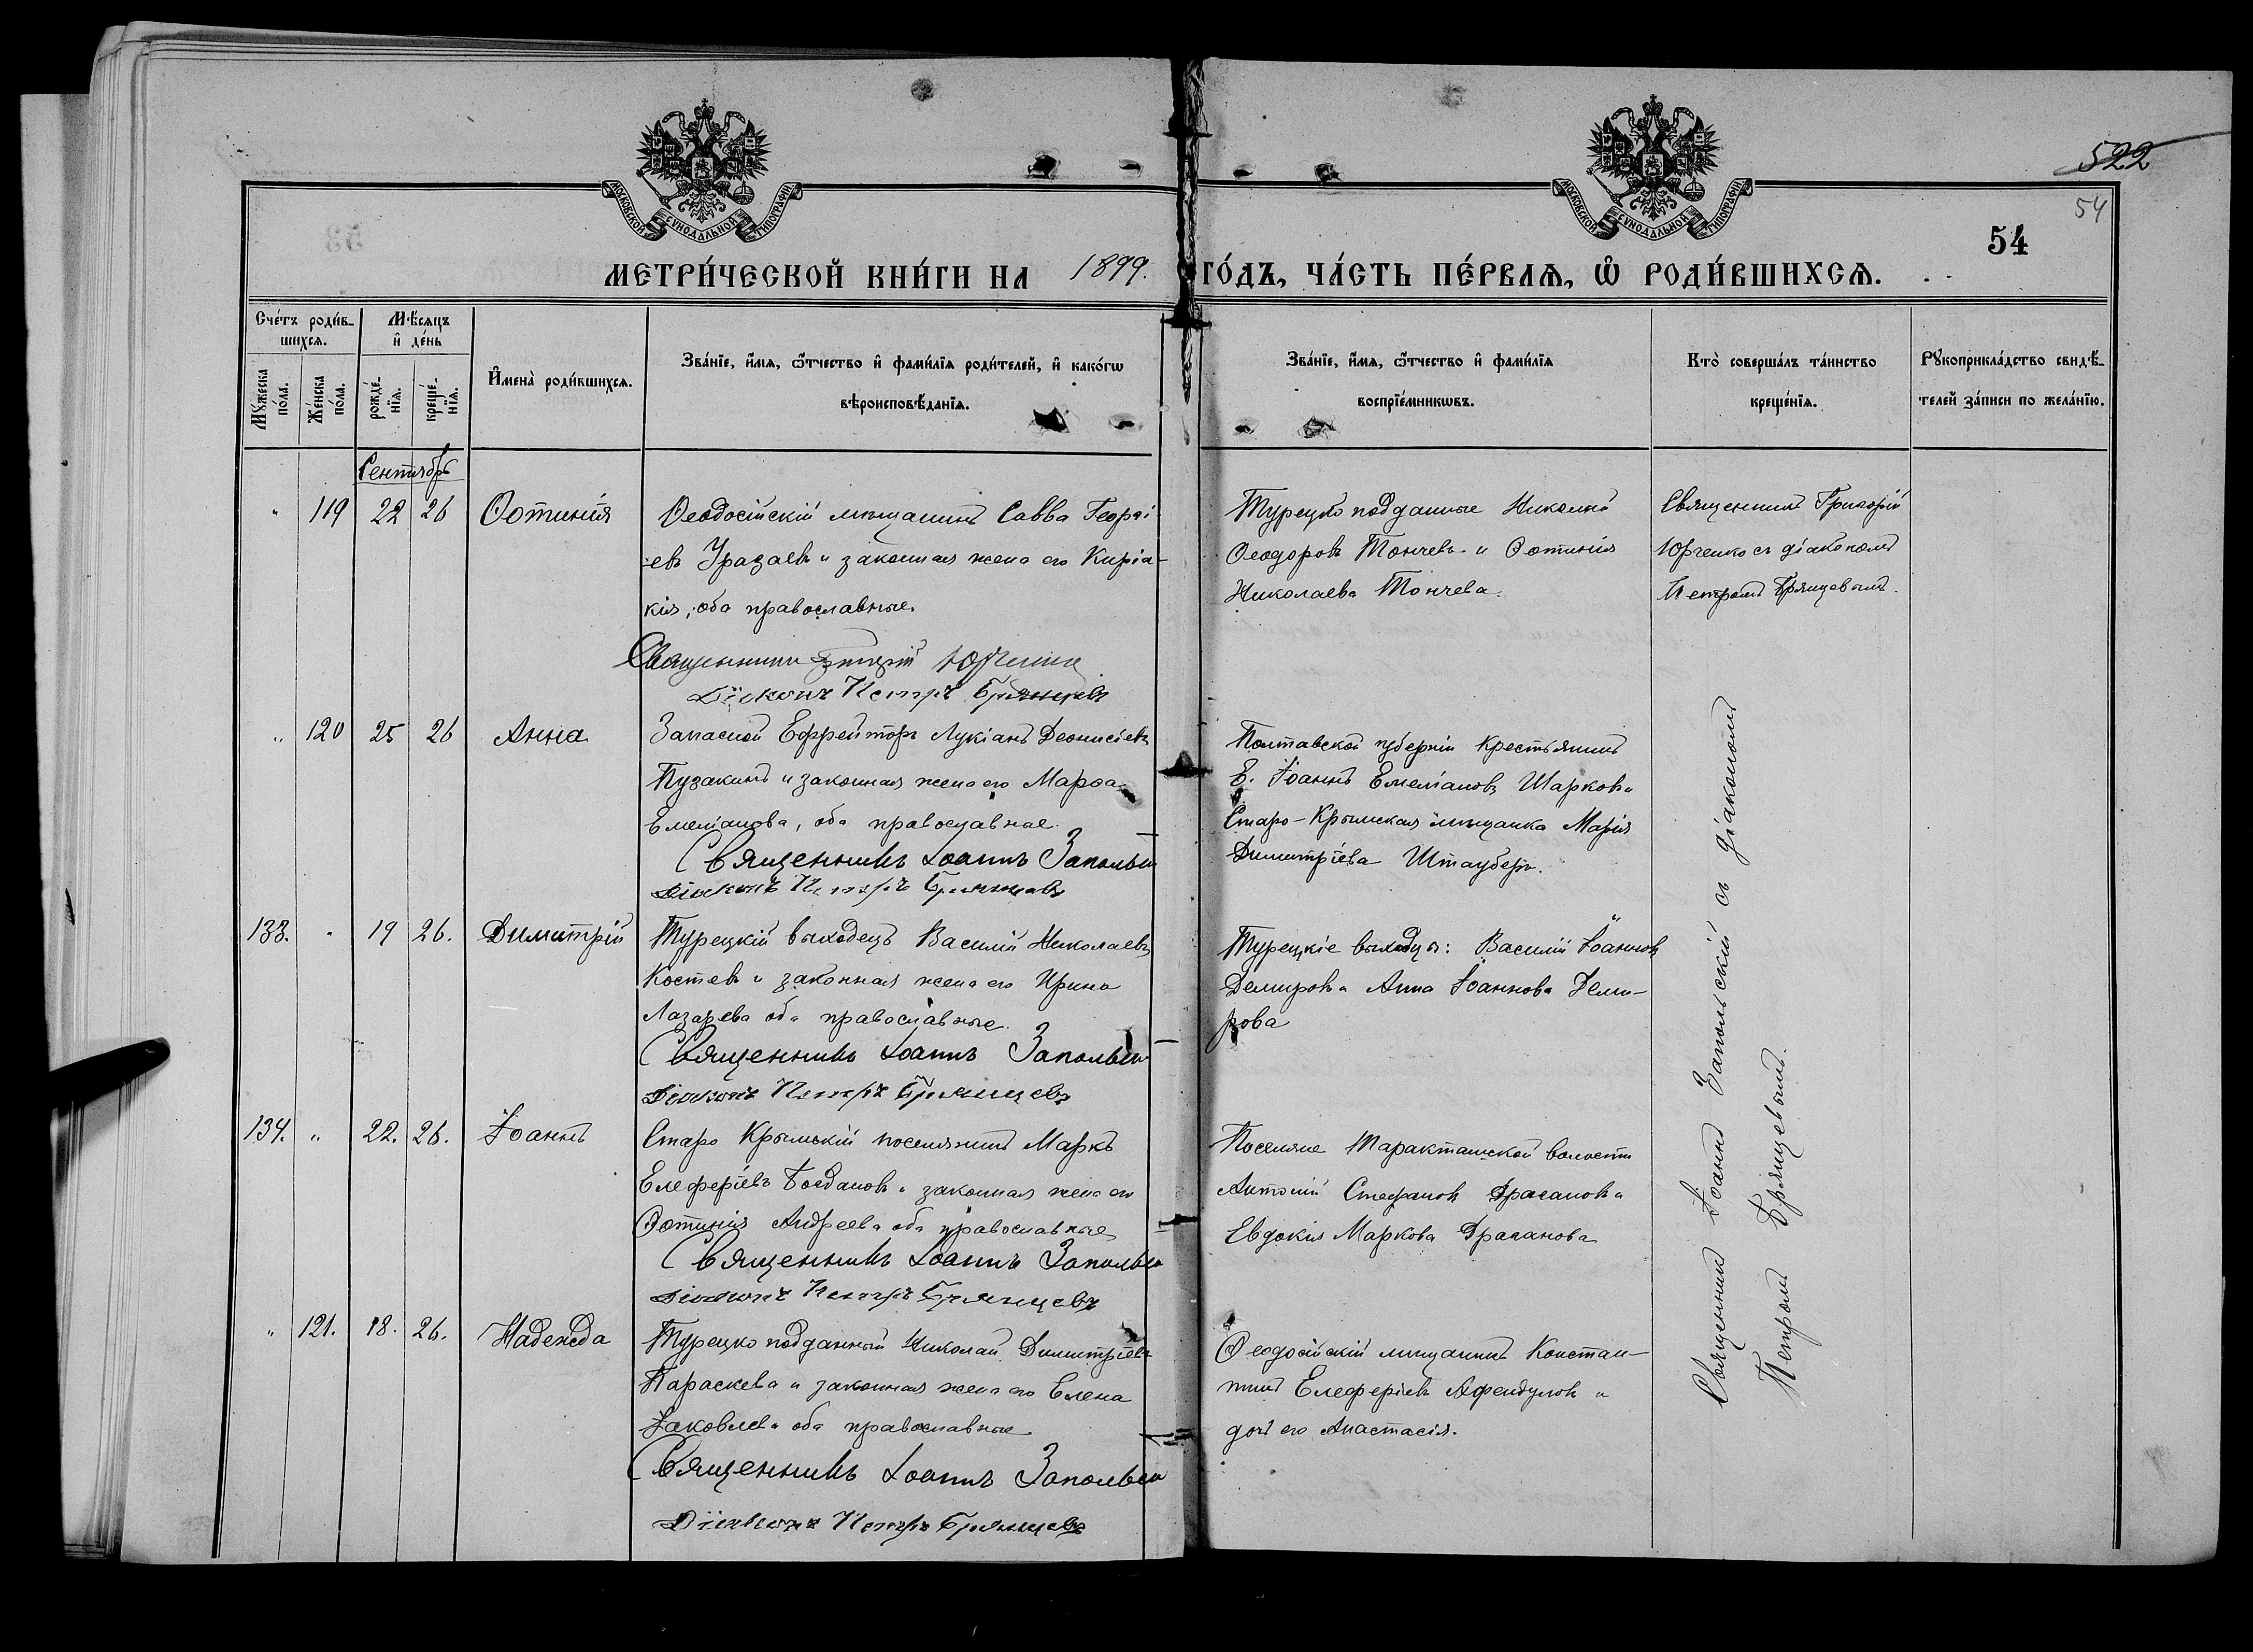 522
54
54
МОСКОВСКОЙ СѴНОДАЛЬНОЙ ТИПОГРАФІИ
МОСКОВСКОЙ СѴНОДАЛЬНОЙ ТИПОГРАФІИ
МЕТРИ́ЧЕСКОЙ КНИ́ГИ НА 1899. ГО́ДЪ, ЧА́СТЬ ПЕ́РВАѦ, Ѡ РОДИ́ВШИХСѦ.
Сче́тъ роди́в-
шихсѧ.
Мꙋ́жеска по́ла.
Же́нска по́ла.
Мѣ́сѧцъ и҆ де́нь
рожде́-нїѧ.
креще́-нїѧ.
И҆мена̀ роди́вшихсѧ.
Зва́нїе, и҆́мѧ, ѻ҆́тчество и҆ фамі́лїѧ роди́телей, и҆ како́гѡ
вѣроисповѣ́данїѧ.
Зва́нїе, и҆́мѧ, ѻ҆́тчество и҆ фамі́лїѧ
воспрїе́мникѡвъ.
Кто̀ соверша́лъ та́инство
креще́нїѧ.
Рꙋкоприкла́дство свидѣ́-
телей за́писи по жела́нїю.
Сентябрь
" 119 22 26 Ѳотинія
Ѳеодосійскій мѣщанинъ Савва Георгі
-евъ Уразаевъ и законная жена его Киріа-
кія, оба православные.
Священникъ Григорій Юрченко
Діаконъ Петръ Брянцевъ
Турецко подданные Николай
Ѳеодоровъ Тончевъ и Ѳотинія
Николаева Тончева.
Священникъ Григорій
Юрченко съ діакономъ
Петромъ Брянцевымъ.
" 120 25 26 Анна
Запасной Ефрейторъ Лукіанъ Деонисіевъ
Пузакинъ и законная жена его Марѳа
Емеліанова, оба православные.
Священникъ Іоаннъ Запольскій
Діаконъ Петръ Брянцевъ
Полтавской губерніи крестьянинъ
Іоаннъ Емеліановъ Шарковъ и
Старо-Крымская мѣщанка Марія
Димитріева Штауберъ.
133. " 19 26. Димитрій
Турецкій выходецъ Василій Николаевъ
Костевъ и законная жена его Ирина
Лазарева оба православные.
Священникъ Іоаннъ Запольскій
Діаконъ Петръ Брянцевъ
Турецкіе выходцы: Василій Іоанновъ
Демировъ и Анна Іоаннова Деми-
рова
134. " 22. 26. Іоаннъ
Старо Крымскій поселянинъ Маркъ
Елеферіевъ Богдановъ и законная жена его
Ѳотинія Андреева оба православные
Священникъ Іоаннъ Запольскій
Діаконъ Петръ Брянцевъ
Поселяне Таракташской волости
Антоній Стефановъ Драгановъ и
Евдокія Маркова Драганова
" 121. 18. 26. Надежда
Турецко подданный Николай Димитріевъ
Параскева и законная жена его Елена
Іаковлева оба православные
Священникъ Іоаннъ Запольскій
Діаконъ Петръ Брянцевъ
Ѳеодосійскій мѣщанинъ Констан-
тинъ Елеферіевъ Афендуловъ и
дочь его Анастасія.
Священникъ Іоаннъ Запольскій съ діакономъ
Петромъ Брянцевымъ.